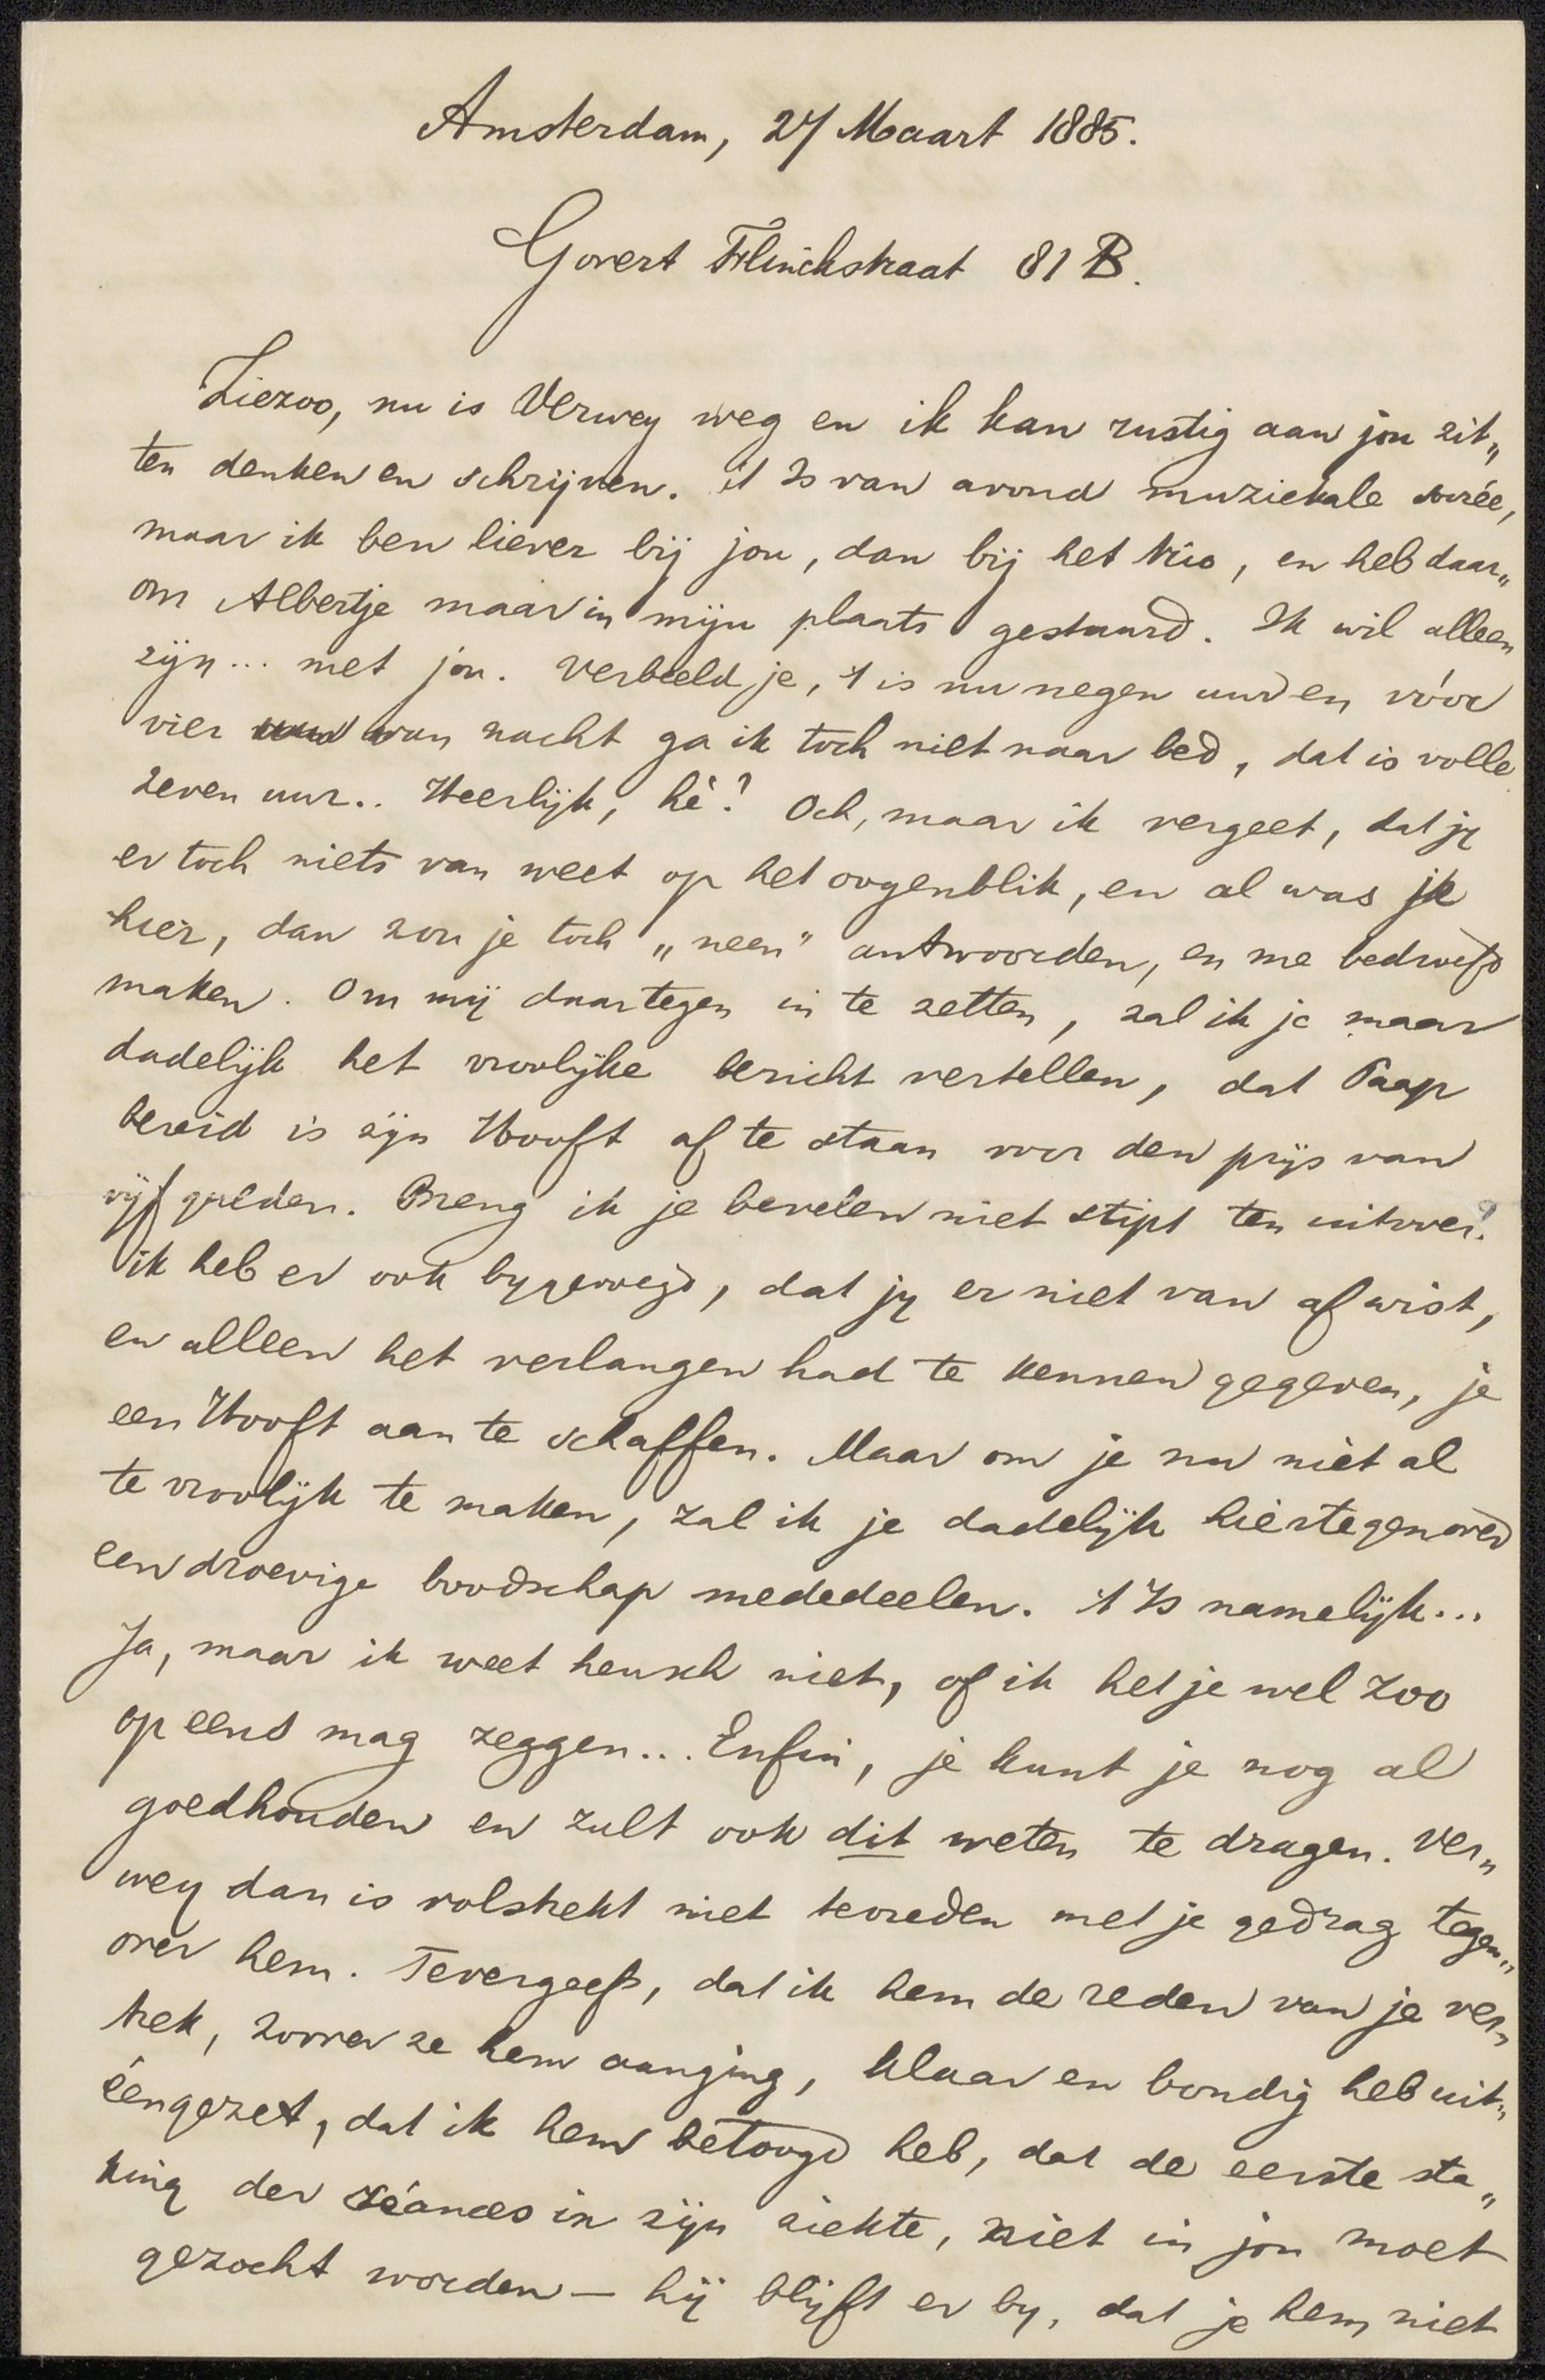 Amsterdam, 27 Maart 1885.
Govert Flinckstraat 81 B.
Ziezoo, nu is Verwey weg en ik kan rustig aan jou zit„
ten denken en schrijven. 't Is van avond muziekale soirée,
maar ik ben liever bij jou, dan bij het trio, en heb daar„
om Albertje maar in mijn plaats gestuurd. Ik wil alleen
zijn... met jou. Verbeeld je, 't is nu negen uur en vóor
vier uur van nacht ga ik toch niet naar bed, dat is volle
zeven uur.. Heerlijk, hè? Och, maar ik vergeet, dat jy
er toch niets van weet op het oogenblik, en al was je
hier, dan zou je toch „neen" antwoorden, en me bedroefd
maken. Om mij daartegen in te zetten, zal ik je maar
dadelijk het vroolijke bericht vertellen, dat Paap
bereid is zijn Hooft af te staan voor den prijs van
vijf gulden. Breng ik je bevelen niet stipt ten uitvoer?
ik heb er ook bygevoegd, dat jy er niet van af wist,
en alleen het verlangen had te kennen gegeven, je
een Hooft aan te schaffen. Maar om je nu niet al
te vroolijk te maken, zal ik je dadelijk hiertegenover
een droevige boodschap mededeelen. 't Is namelijk...
Ja, maar ik weet heusch niet, of ik het je wel zoo
op eens mag zeggen... Enfin, je kunt je nog al
goedhouden en zult ook dit weten te dragen. Ver„
wey dan is volstrekt niet tevreden met je gedrag tegen„
over hem. Tevergeefs, dat ik hem de reden van je ver„
trek, zoover ze hem aanging, klaar en bondig heb uit„
ééngezet, dat ik hem betoogd heb, dat de eerste sta„
king der séances in zijn ziekte, niet in jou moet
gezocht worden — hij blijft er by, dat je hem niet